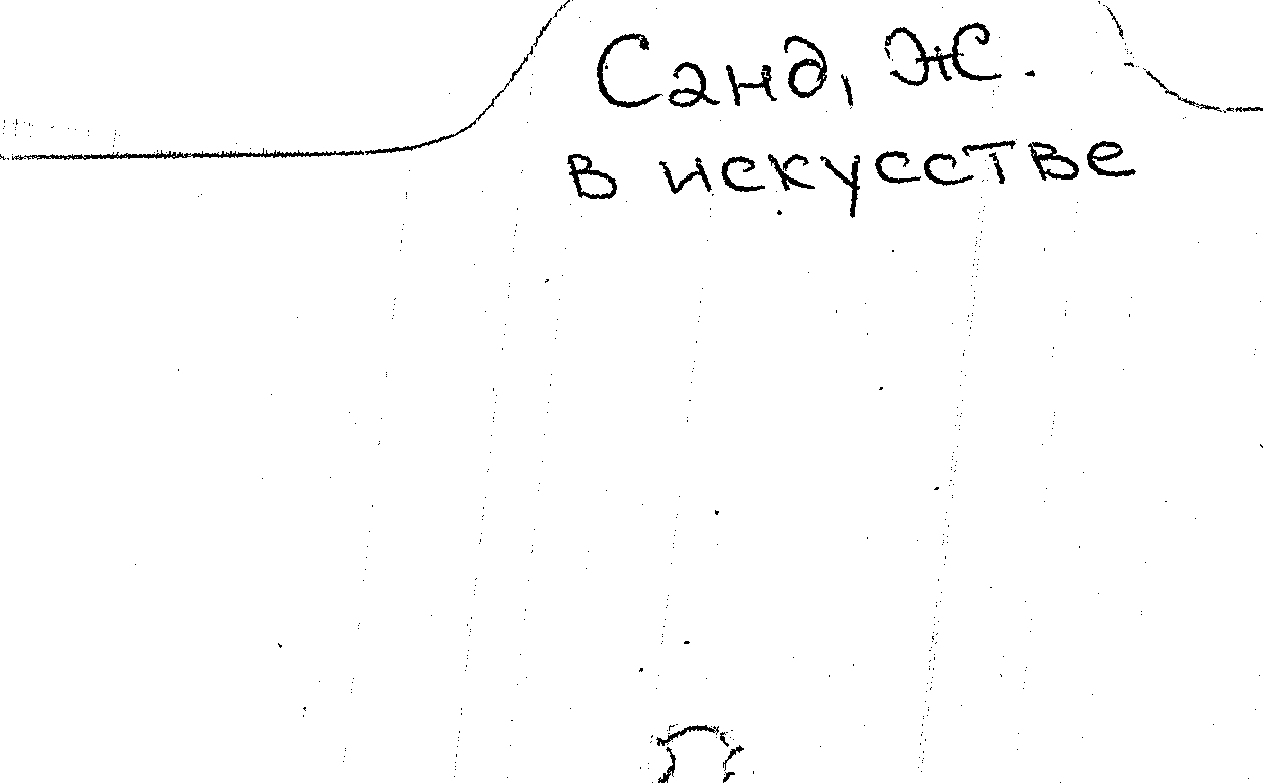 Санд, Ж.
в искусстве